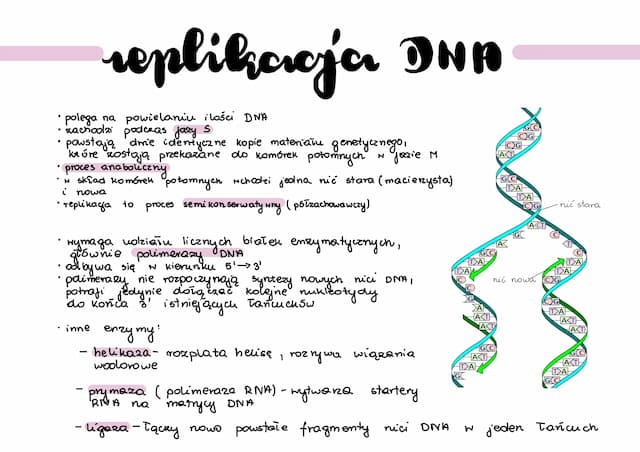 replikacja DNA
• polega na powielaniu ilości DNA
• zachodzi podczas fazy S
• powstają dwie identyczne kopie materiału genetycznego,
które zostają przekazane do komórek potomnych w fazie M
• proces anaboliczny
• w skład komórek potomnych wchodzi jedna nić stara (macierzysta)
i nowa
• replikacja to proces semikonserwatywny (półzachowawczy)
nić stara
• wymaga udziału licznych białek enzymatycznych,
głównie polimerazy DNA
• odbywa się w kierunku 5'→3'
• polimerazy nie rozpoczynają syntezy nowych nici DNA,
potrafi jedynie dołączać kolejne nukleotydy
do końca 3' istniejących łańcuchów
nić nowa
• inne enzymy:
– helikaza – rozplata helisę, rozrywa wiązania
wodorowe
– prymaza (polimeraza RNA) – wytwarza startery
RNA na matrycy DNA
– ligaza – łączy nowo powstałe fragmenty nici DNA w jeden łańcuch